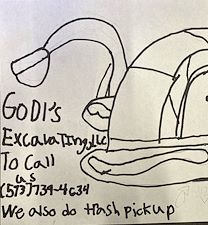 GODI's
Excavating,LLC
To Call
us
(573)739-4634
We also do trash pickup